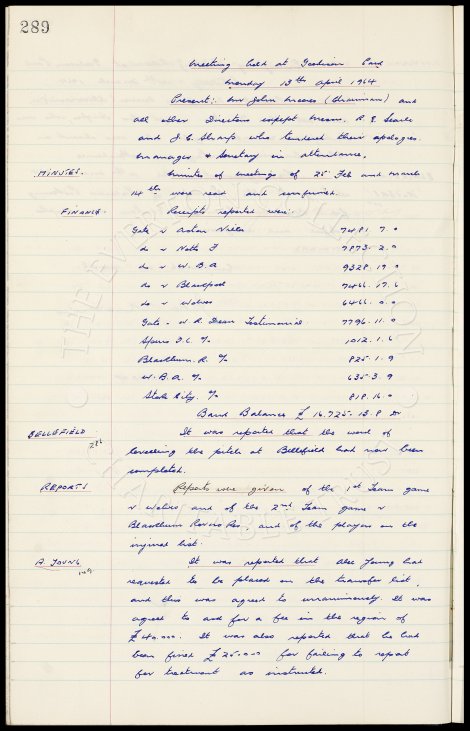 289
Meeting held at Goodison Park
Monday 13th April 1964
Present:- Mr John Moores (Chairman) and
all other Directors except Messrs. R. E. Searle
and J. C. Sharp who tendered their apologies
Manager & Secretary in attendance.
MINUTES. Minutes of meetings of 25 Feb and March
14th were read and confirmed.
FINANCE. Receipts reported were:-
Gate v Aston Villa 7481. 7. 0
do v Notts F 7873. 2. 0
do v W. B. A 9328. 19. 0
do v Blackpool 7466. 17. 6
do v Wolves 6466. 0. 0
Gate - W R. Dean Testimonial 7796. 11. 0
Spurs F.C. % 1012. 1. 6
Blackburn. R. % 825. 1. 9
W. B. A. % 635. 3. 9
Stoke City. % 818. 16. 0
Bank Balance £ 16.725. 13. 8 Dr
BELLEFIELD 286 It was reported that the work of
levelling the pitch at Bellefield had now been
completed.
REPORTS Reports were given of the 1st Team game
v Wolves, and of the 2nd Team game v
Blackburn Rovers Res. and of the players on the
injured list.
A. YOUNG It was reported that Alex Young had
requested to be placed on the transfer list,
and this was agreed to unanimously. It was
agreed to ask for a fee in the region of
£40.000. It was also reported that he had
been fined £25-0-0 for failing to report
for treatment as instructed.
THE EVERTON COLLECTION
CHARITABLE TRUST